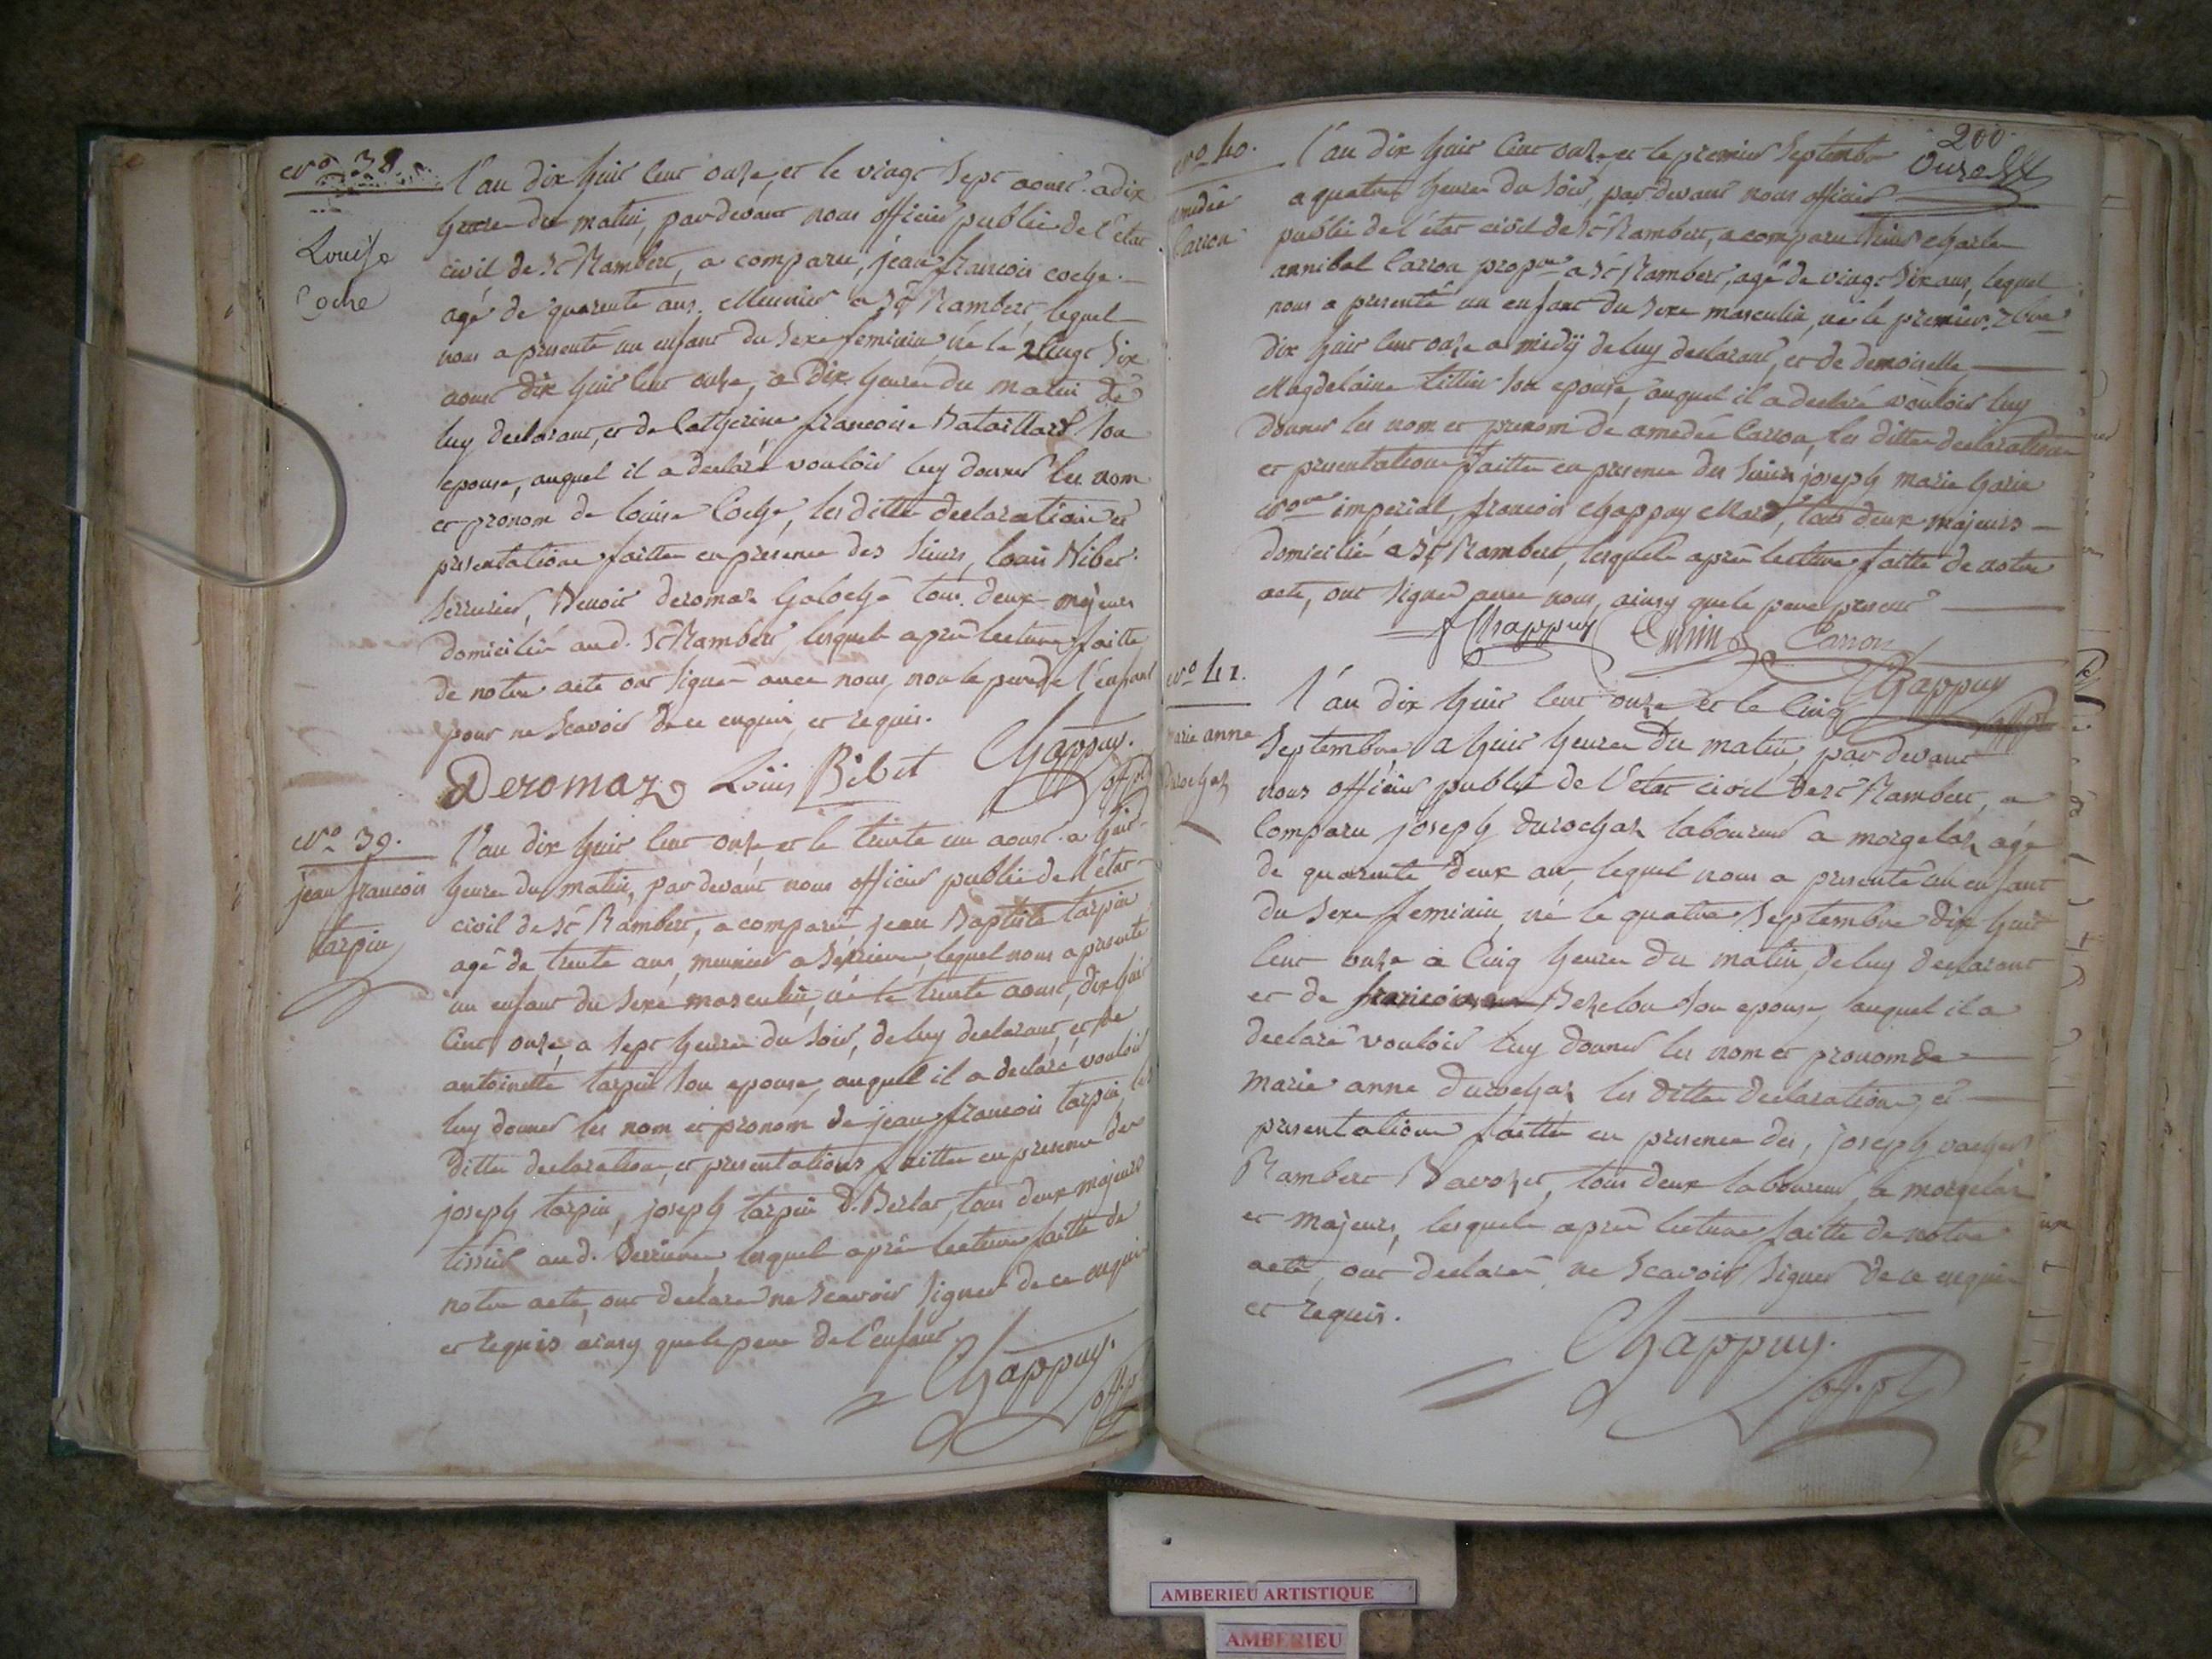 N.o 38.
Louise
Coche
l'an dix huit cent onze, et le vingt sept aoust a dix
heures du matin, par devant nous officier public de l'état
civil de St Rambert, a comparu, jean francois coche
agé de quarente ans, Meunier a St Rambert, lequel
nous a presenté un enfant du sexe feminin, né le vingt six
aoust dix huit cent onze, a dix heures du matin de
luy declarant, et de Catherine francoise Bataillard son
epouse, auquel il a declaré vouloir luy donner les nom
et pronom de louise Coche, les dittes declarations et
presentations faittes en presence des sieurs, louis Bibet
serrurier, Benoit deromaz galoché tous deux majeurs
domiciliés aud. St Rambert, lesquels après lecture faitte
de notre acte ont signés avec nous, non le pere de l'enfant
pour ne scavoir de ce enquis et requis.
Deromaz Loüis Bibet Chappuy.
off. pb
N.o 39.
jean francois
tarpin
l'an dix huit cent onze et le trente un aoust a huit
heures du matin, par devant nous officier public de l'état
civil de St Rambert, a comparu jean Baptiste tarpin
agé de trente ans, meunier a Serrieres, lequel nous a presenté
un enfant du sexe masculin, né le trente aoust, dix huit
cent onze, a sept heures du soir, de luy declarant, et de
antoinette tarpin son epouse, auquel il a declaré vouloir
luy donner les nom et pronom de jean francois tarpin, les
dittes declarations, et presentations faittes en presence des
joseph tarpin, joseph tarpin d. Berlat, tous deux majeurs
tissiers aud. Serrieres, lesquels après lecture faitte de
notre acte, ont declaré ne scavoir signer de ce enquis
et requis ainsy que le pere de l'enfant.
Chappuy.
off. p
200
onze
N.o 40.
amedée
Carron
l'an dix huit cent onze, et le premier septembre
a quatre heures du soir, par devant nous officier
public de l'état civil de St Rambert, a comparu sieur charles
annibal Carron prop.re a St Rambert, agé de vingt six ans, lequel
nous a presenté un enfant du sexe masculin, né le premier 7bre
dix huit cent onze a midÿ de luy declarant, et de demoiselle
Magdelaine tillier son epouse, auquel il a declaré vouloir luy
donner les nom et prenom de amedée Carron, les dittes declarations
et presentations faittes en presence des sieurs joseph marie
N.re imperial, francois chappuy Mard, tous deux majeurs
domiciliés a St Rambert, lesquels après lecture faitte de notre
acte, ont signés avec nous, ainsy que le pere present
f Chappuy Carron
Chappuy
N.o 41.
marie anne
durochaz
l'an dix huit cent onze et le Cinq
Septembre, a huit heures du matin, par devant
nous officier public de l'état civil de St Rambert, a
Comparu joseph durochaz laboureur a morgelaz, agé
de quarente deux ans, lequel nous a presenté un enfant
du sexe feminin, né le quatre septembre dix huit
cent onze a Cinq heures du matin, de luy declarant
et de son epouse, auquel il a
declaré vouloir luy donner les nom et pronom de
marie anne durochaz, les dittes declarations, et
presentations faittes en presence des, joseph vacher
Rambert Bavozet, tous deux laboureurs, a morgelaz
et majeurs, lesquels après lecture faitte de notre
acte, ont declaré ne scavoir signer de ce enquis
et requis.
Chappuy.
off. pb
AMBERIEU ARTISTIQUE
AMBERIEU